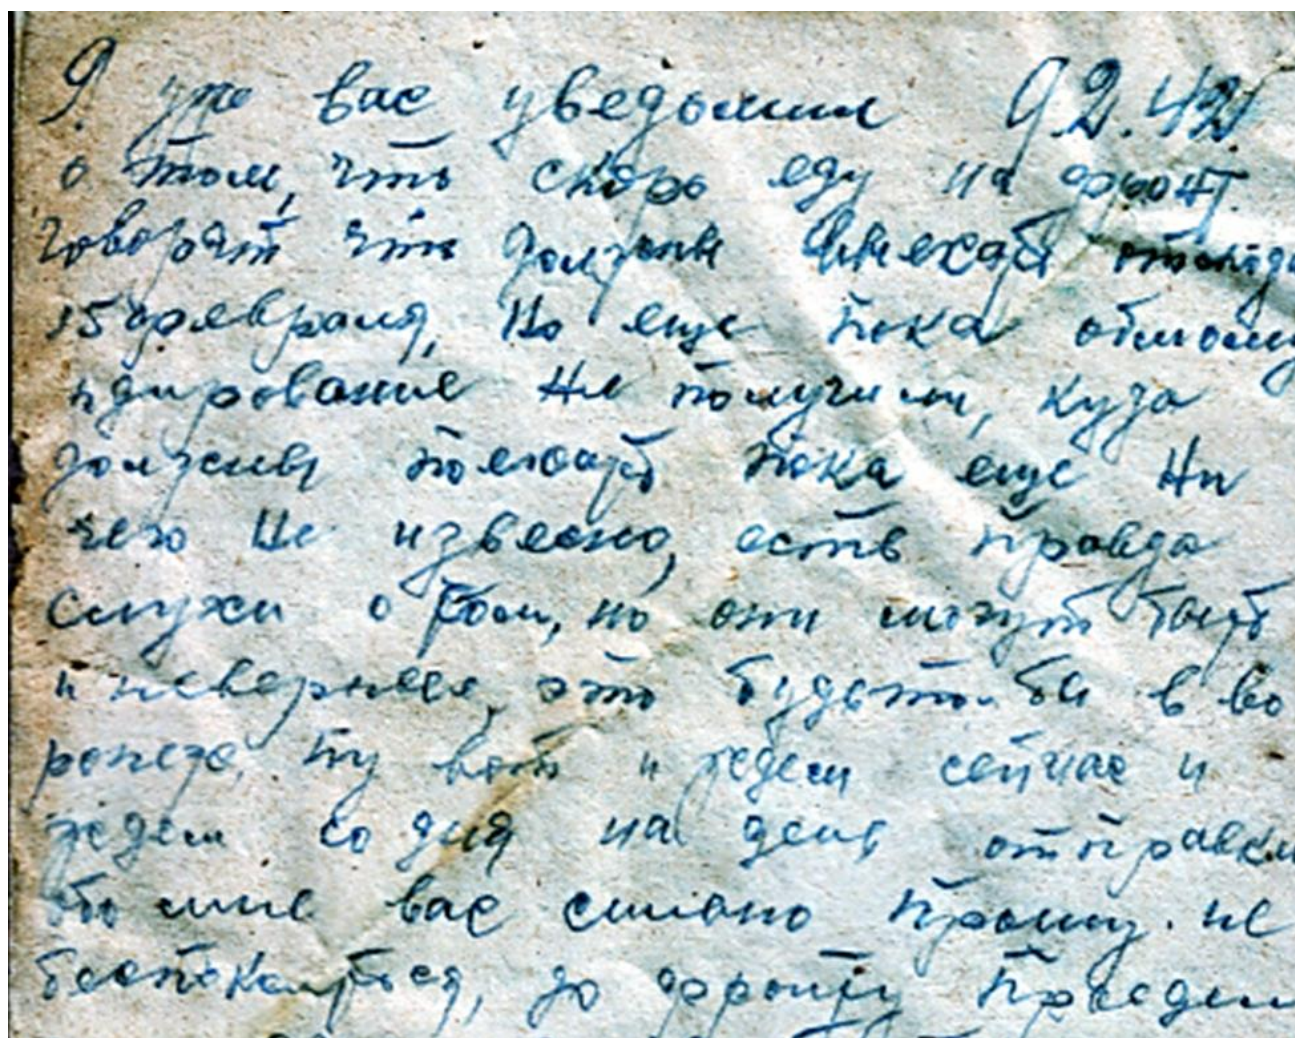 Я уже вас уведомил 9.2.42
о том, что скоро еду на фронт.
говорят что должны выехать отсюда
15 февраля, Но еще пока обмому
ндирование Не получили, куда
должны поехать пока еще Ни
чего Не извесно, есть правда
слухи о том, но они могут быть
и неверные, это будто бы в Во
ронеж, Ну вот и ждем сейчас и
ждем со дня на день отправки
обо мне вас сильно прошу. не
беспокоиться, до фронту проедем